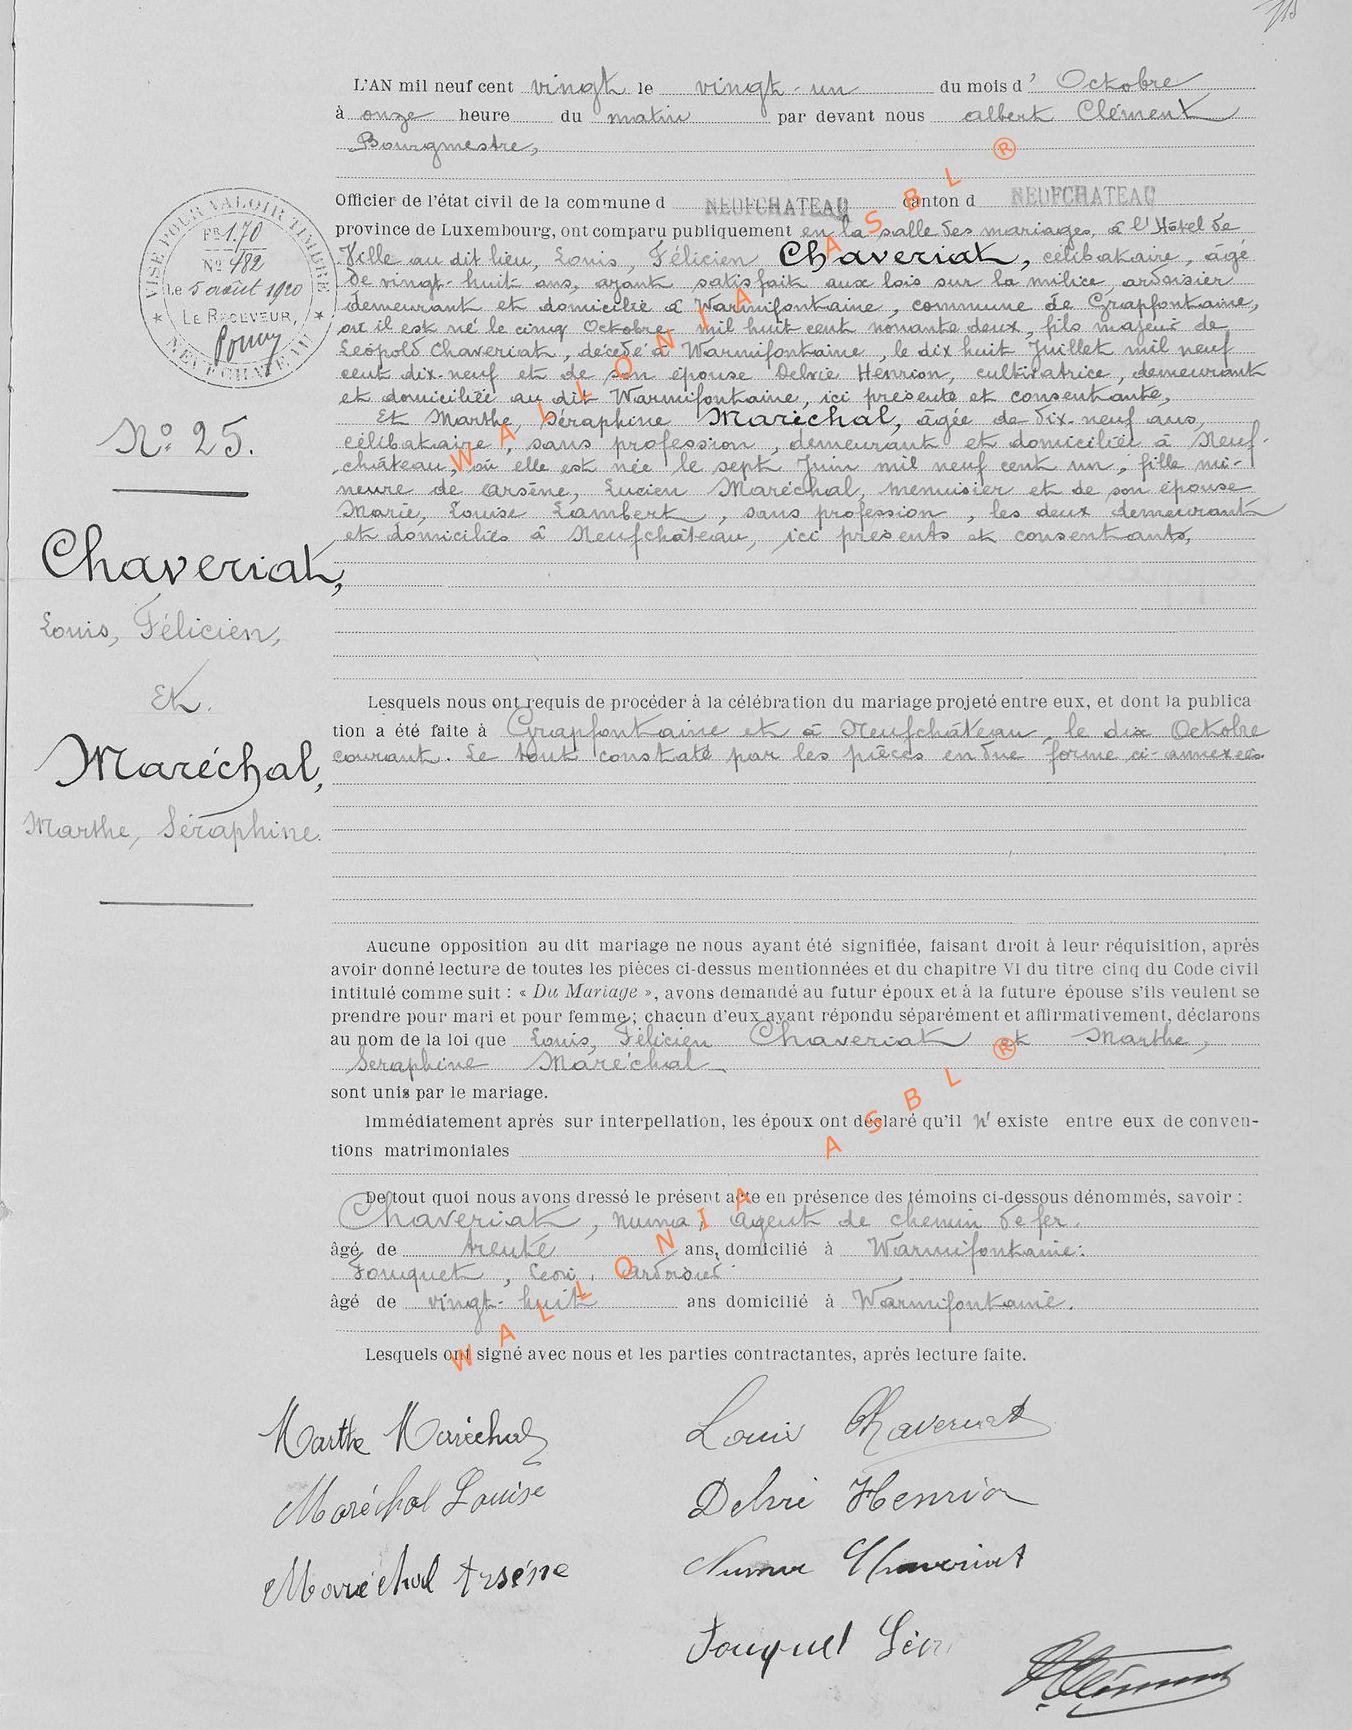 L'AN mil neuf cent vingt le vingt-un du mois d' Octobre
à onze heure du matin par devant nous albert Clément
Bourgmestre,
Officier de l'état civil de la commune d NEUFCHATEAU canton d NEUFCHATEAU
province de Luxembourg, ont comparu publiquement en la salle des mariages, à l'Hôtel de
Ville au dit lieu, Louis, Félicien Chaveriat, célibataire, âgé
de vingt-huit ans, ayant satisfait aux lois sur la milice, ardoisier
demeurant et domicilié à Warmifontaine, commune de Grapfontaine,
où il est né le cinq Octobre mil huit cent nonante deux, fils majeur de
Léopold Chaveriat, décédé à Warmifontaine, le dix huit Juillet mil neuf
cent dix-neuf et de son épouse Delvie Henrion, cultivatrice, demeurant
et domiciliée au dit Warmifontaine, ici présente et consentante,
Et Marthe, Séraphine Maréchal, âgée de dix-neuf ans,
célibataire, sans profession, demeurant et domiciliée à Neuf-
château, où elle est née le sept Juin mil neuf cent un, fille mi-
neure de Arsène, Lucien Maréchal, menuisier et de son épouse
Marie, Louise Lambert, sans profession, les deux demeurant
et domiciliés à Neufchâteau, ici présents et consentants,
VISÉ POUR VALOIR TIMBRE
FR 1.70
No 482
Le 5 août 1920
LE RECEVEUR,
* NEUFCHATEAU *
No 25.
Chaveriat,
Louis, Félicien,
Et.
Maréchal,
Marthe, Séraphine.
Lesquels nous ont requis de procéder à la célébration du mariage projeté entre eux, et dont la publica
tion a été faite à Grapfontaine et à Neufchâteau, le dix Octobre
courant. Le tout constaté par les pièces en due forme ci-annexées.
Aucune opposition au dit mariage ne nous ayant été signifiée, faisant droit à leur réquisition, après
avoir donné lecture de toutes les pièces ci-dessus mentionnées et du chapitre VI du titre cinq du Code civil
intitulé comme suit : « Du Mariage », avons demandé au futur époux et à la future épouse s'ils veulent se
prendre pour mari et pour femme ; chacun d'eux ayant répondu séparément et affirmativement, déclarons
au nom de la loi que Louis, Félicien Chaveriat et Marthe,
Séraphine Maréchal
sont unis par le mariage.
Immédiatement après sur interpellation, les époux ont déclaré qu'il n'existe entre eux de conven-
tions matrimoniales
De tout quoi nous avons dressé le présent acte en présence des témoins ci-dessous dénommés, savoir :
Chaveriat, Numa, agent de chemin de fer.
âgé de trente ans, domicilié à Warmifontaine.
Fouquet, Léon, ardoisier
âgé de vingt-huit ans domicilié à Warmifontaine.
Lesquels ont signé avec nous et les parties contractantes, après lecture faite.
Marthe Maréchal Louis Chaveriat
Maréchal Louise Delvie Henrion
Maréchal Arsène Numa Chaveriat
Fouquet Léon
AClément
WALLONIA ASBL ®
WALLONIA ASBL ®